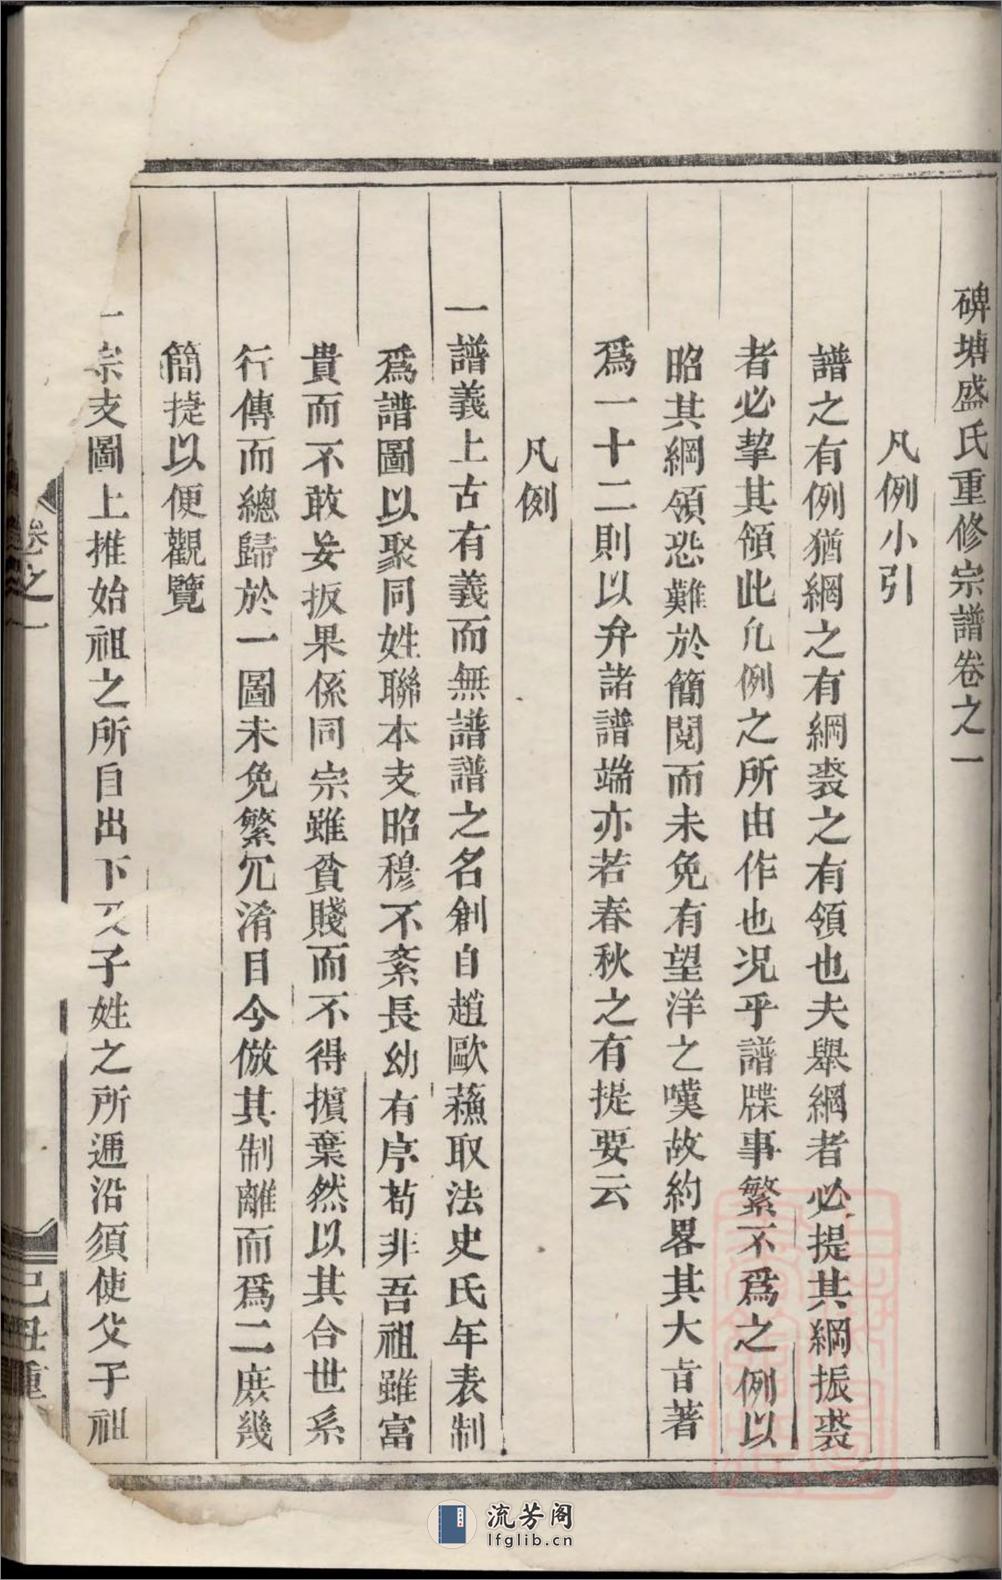 碑塘盛氏重修宗譜卷之一
凡例小引
譜之有例猶網之有綱裘之有領也夫舉網者必提其綱振裘
者必挈其領此凢例之所由作也况乎譜牒事繁不爲之例以
昭其綱領恐難於簡閱而未免有望洋之嘆故約畧其大㫖著
爲一十二則以弁諸譜端亦若春秋之有提要云
凡例
一譜義上古有義而無譜譜之名創自趙歐蘓取法史氏年表制
爲譜圖以聚同姓聯本支昭穆不紊長幼有序苟非吾祖雖富
貴而不敢妄扳果係同宗雖貧賤而不得擯棄然以其合世系
行傳而總歸於一圖未免繁冗淆目今倣其制離而爲二庶幾
簡㨗以便觀覽
一宗支圖上推始祖之所自出下及子姓之所逓沿須使父子祖
卷之一
己丑重
流芳阁
lfglib.cn